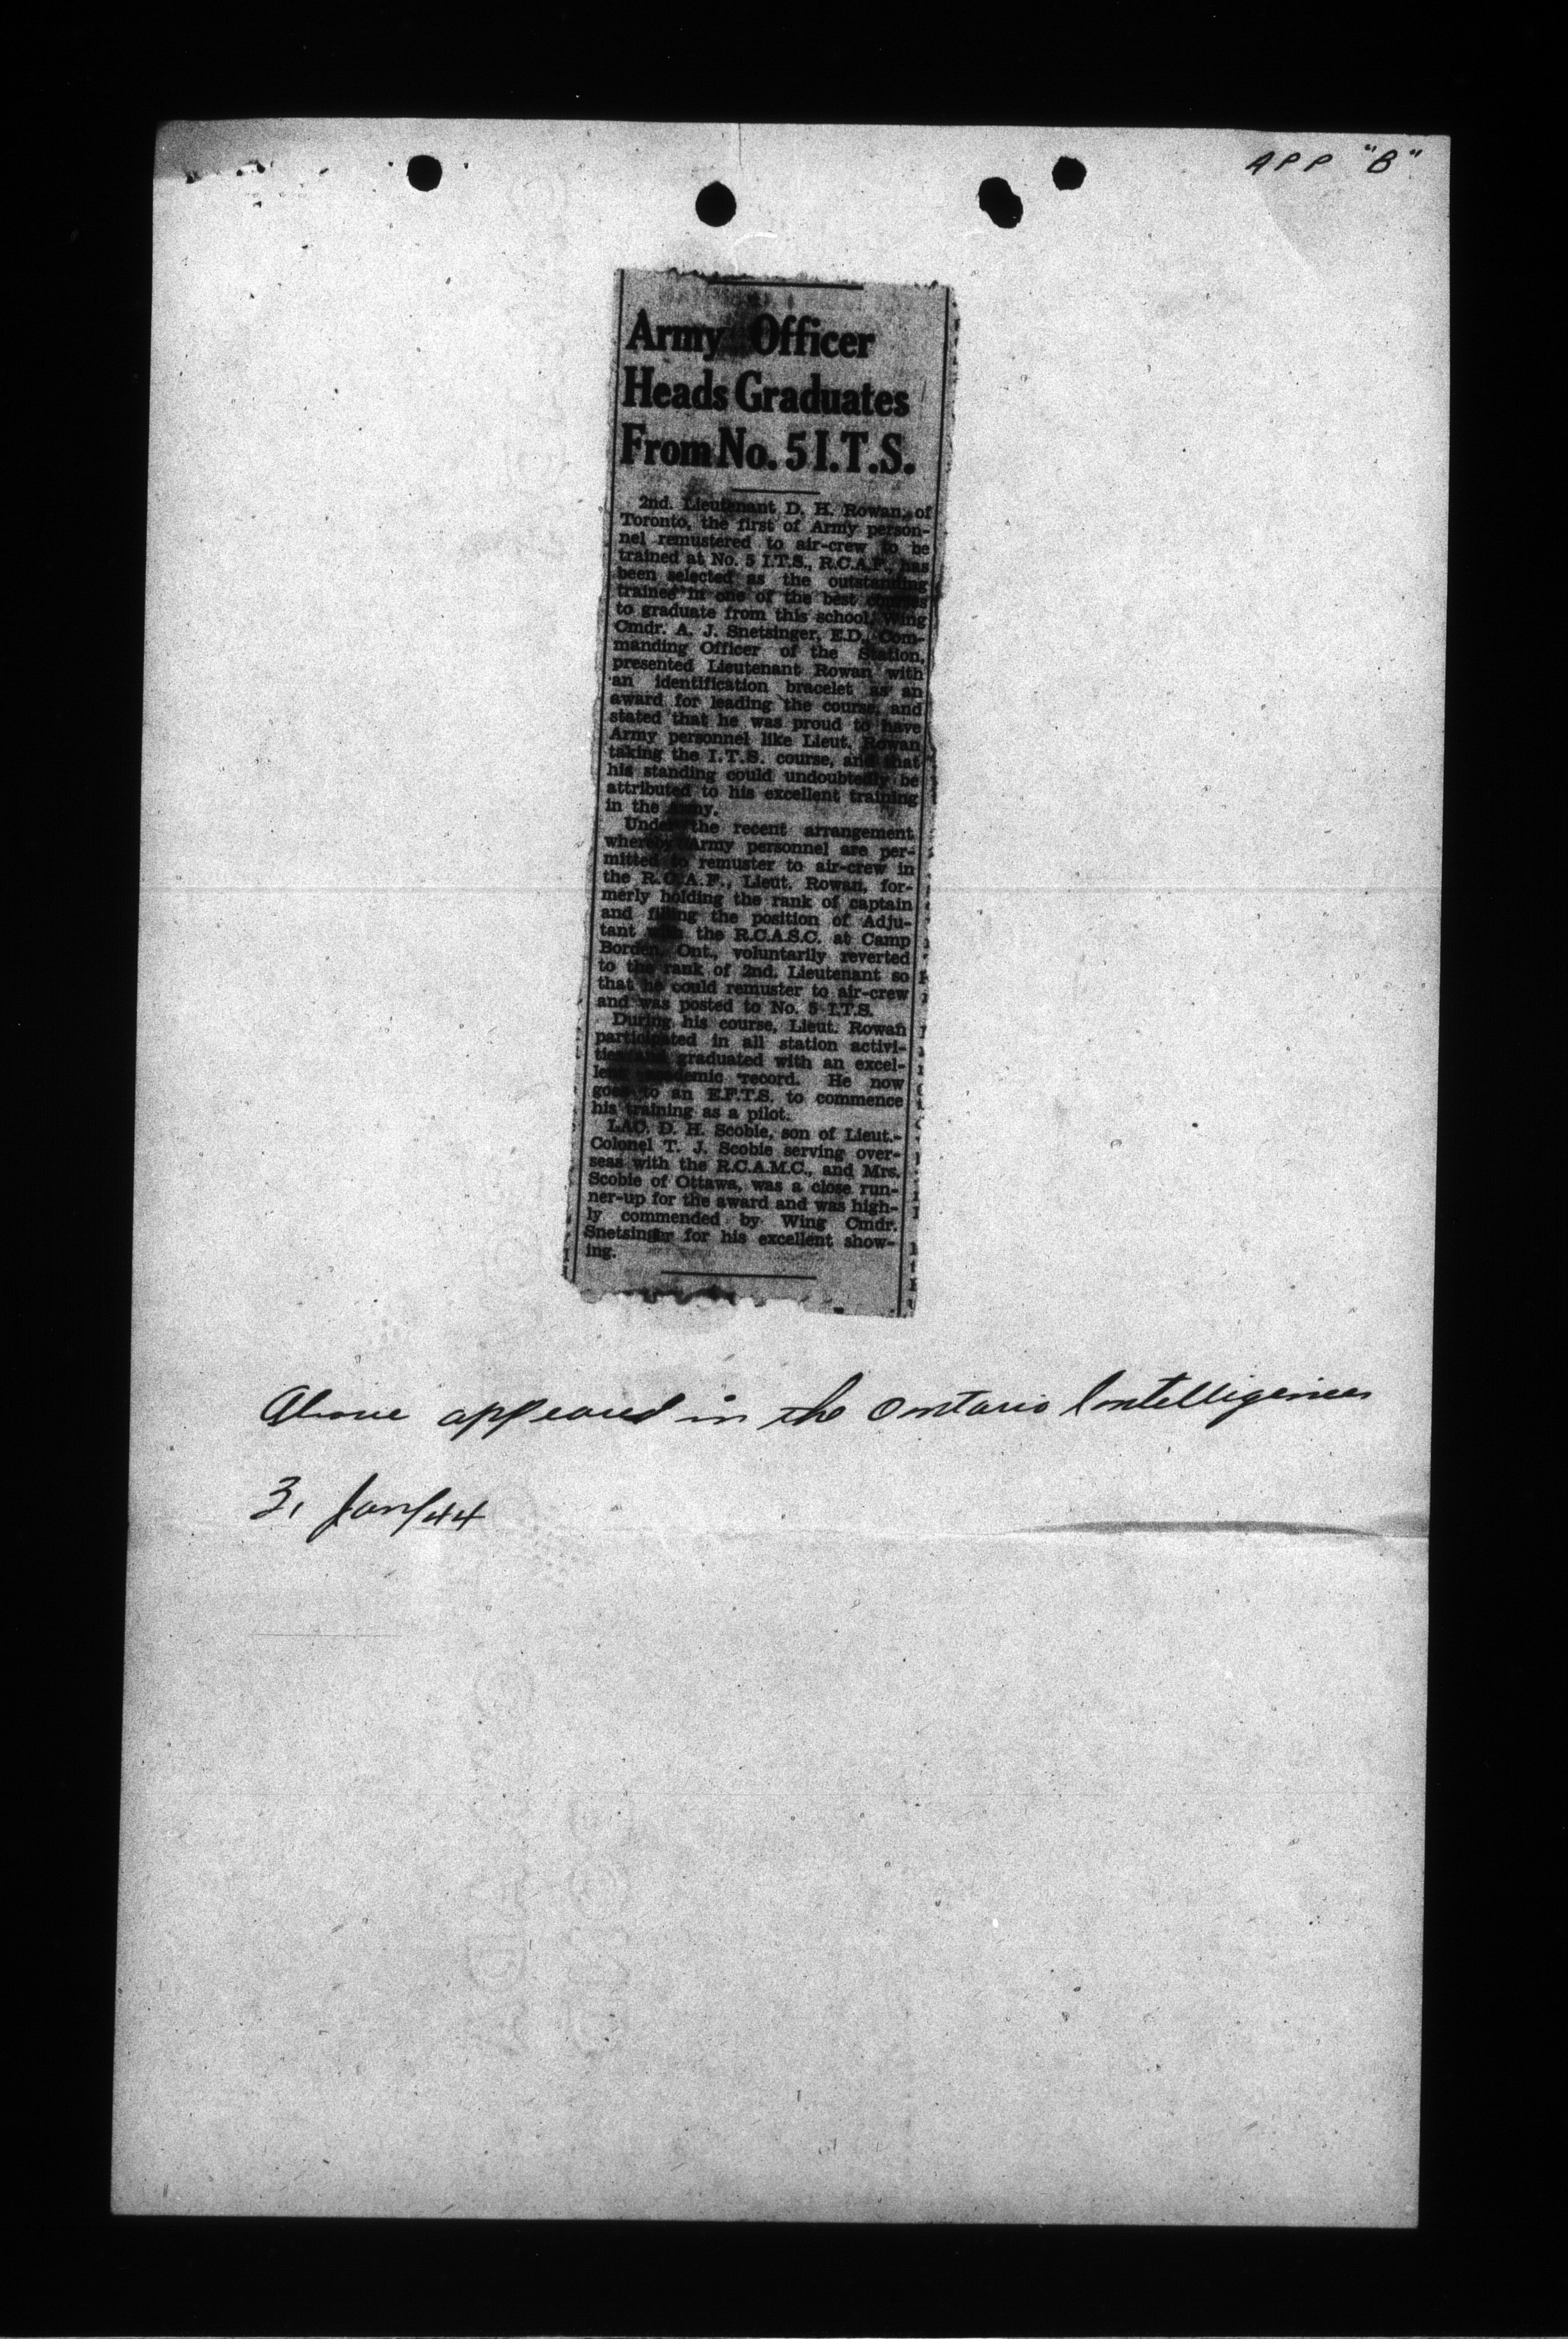 APP "B"
Army Officer
Heads Graduates
From No. 5 I.T.S.
2nd. Lieutenant D. H. Rowan, of
Toronto, the first of Army person-
nel remustered to air-crew to be
trained at No. 5 I.T.S., R.C.A.F., has
been selected as the outstanding
trainee in one of the best courses
to graduate from this school. Wing
Cmdr. A. J. Snetsinger, E.D., Com-
manding Officer of the Station,
presented Lieutenant Rowan with
an identification bracelet as an
award for leading the course, and
stated that he was proud to have
Army personnel like Lieut. Rowan
taking the I.T.S. course, and that
his standing could undoubtedly be
attributed to his excellent training
in the Army.
Under the recent arrangement
whereby Army personnel are per-
mitted to remuster to air-crew in
the R.C.A.F., Lieut. Rowan, for-
merly holding the rank of captain
and filling the position of Adju-
tant with the R.C.A.S.C. at Camp
Borden, Ont., voluntarily reverted
to the rank of 2nd. Lieutenant so
that he could remuster to air-crew
and was posted to No. 5 I.T.S.
During his course, Lieut. Rowan
participated in all station activi-
ties and graduated with an excel-
lent academic record. He now
goes to an E.F.T.S. to commence
his training as a pilot.
LAC. D. H. Scobie, son of Lieut.-
Colonel T. J. Scobie serving over-
seas with the R.C.A.M.C., and Mrs.
Scobie of Ottawa, was a close run-
ner-up for the award and was high-
ly commended by Wing Cmdr.
Snetsinger for his excellent show-
ing.
Above appeared in the Ontario Intelligencer
3, Jan/44